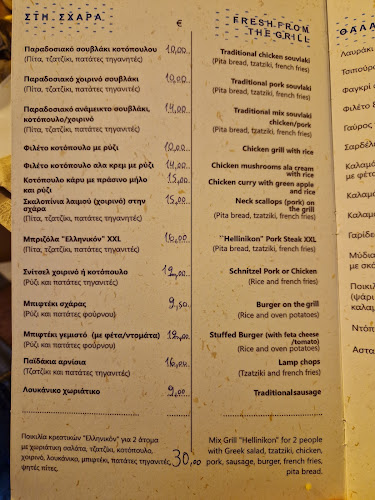 ΣΤΗ ΣΧΑΡΑ
€
Παραδοσιακό σουβλάκι κοτόπουλου 10,00
(Πίτα, τζατζίκι, πατάτες τηγανητές)
Παραδοσιακό χοιρινό σουβλάκι 10,00
(Πίτα, τζατζίκι, πατάτες τηγανιτές)
Παραδοσιακό ανάμεικτο σουβλάκι, 14,00
κοτόπουλο/χοιρινό
(Πίτα, τζατζίκι, πατάτες τηγανιτές)
Φιλέτο κοτόπουλο με ρύζι 10,00
Φιλέτο κοτόπουλο αλα κρεμ με ρύζι 14,00
Κοτόπουλο κάρυ με πράσινο μήλο 15,00
και ρύζι
Σκαλοπίνια λαιμού (χοιρινό) στην 15,00
σχάρα
(Πίτα, τζατζίκι, πατάτες τηγανιτές)
Μπριζόλα "Ελληνικόν" XXL 16,00
(Πίτα, τζατζίκι, πατάτες τηγανιτές)
Σνίτσελ χοιρινό ή κοτόπουλο 12,00
(Ρύζι και πατάτες τηγανιτές)
Μπιφτέκι σχάρας 9,50
(Ρύζι και πατάτες φούρνου)
Μπιφτέκι γεμιστό (με φέτα/ντομάτα) 12,00
(Ρύζι και πατάτες φούρνου)
Παϊδάκια αρνίσια 16,00
(Τζατζίκι και πατάτες τηγανιτές)
Λουκάνικο χωριάτικο 9,00
Ποικιλία κρεατικών "Ελληνικόν" για 2 άτομα
με χωριάτικη σαλάτα, τζατζίκι, κοτόπουλο,
χοιρινό, λουκάνικο, μπιφτέκι, πατάτες τηγανητές, 30,00
ψητές πίτες.
FRESH FROM
THE GRILL
Traditional chicken souvlaki
(Pita bread, tzatziki, french fries)
Traditional pork souvlaki
(Pita bread, tzatziki, french fries)
Traditional mix souvlaki
chicken/pork
(Pita bread, tzatziki, french fries)
Chicken grill with rice
Chicken mushrooms ala cream
with rice
Chicken curry with green apple
and rice
Neck scallops (pork) on
the grill
(Pita bread, tzatziki, french fries)
"Hellinikon" Pork Steak XXL
(Pita bread, tzatziki, french fries)
Schnitzel Pork or Chicken
(Rice and french fries)
Burger on the grill
(Rice and oven potatoes)
Stuffed Burger (with feta cheese
/tomato)
(Rice and oven potatoes)
Lamp chops
(Tzatziki and french fries)
Traditional sausage
Mix Grill "Hellinikon" for 2 people
with Greek salad, tzatziki, chicken,
pork, sausage, burger, french fries,
pita bread.
ΘΑΛΑ
Λαυράκι
Τσιπούρα
Φαγκρί
Φιλέτο
Γαύρος
Σαρδέλα
Καλαμά
με φέτα
Καλαμά
Γαρίδε
Μύδια
με σκό
Ποικιλ
(ψάρι
καλαμ
Ντόπ
Αστα